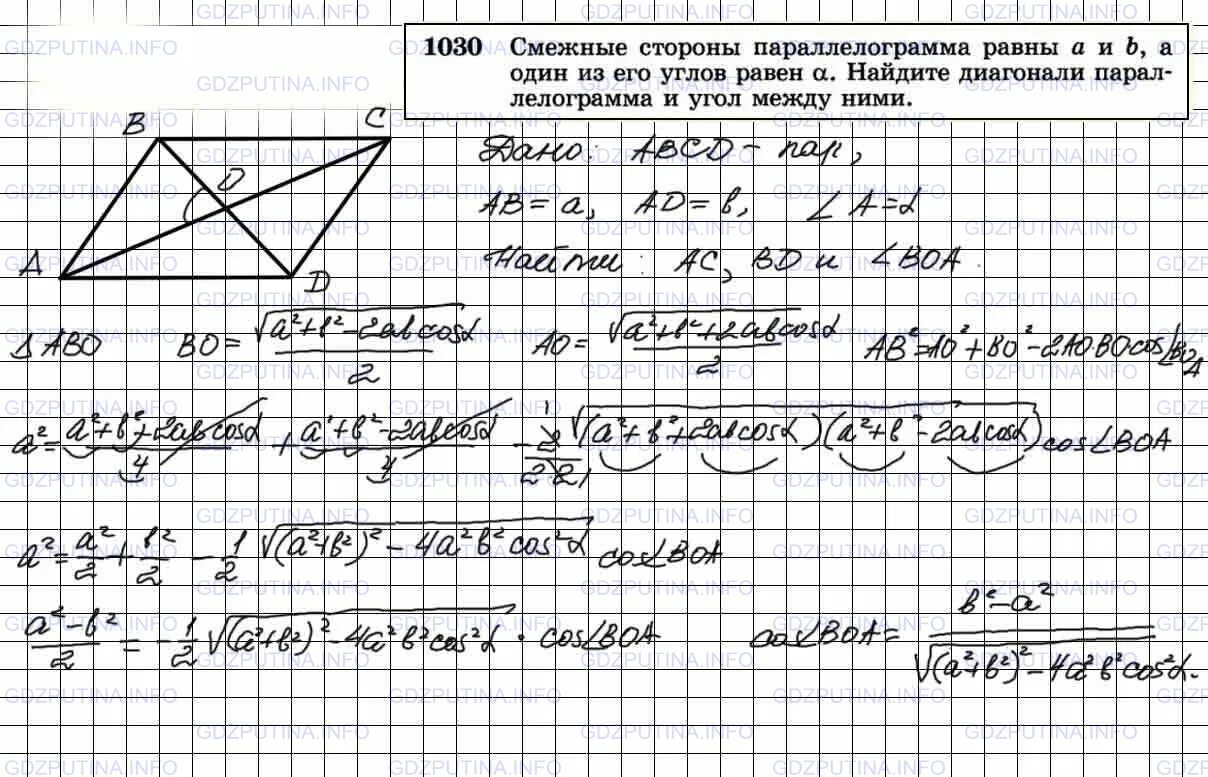 1030 Смежные стороны параллелограмма равны a и b, а
один из его углов равен α. Найдите диагонали парал-
лелограмма и угол между ними.
B C
O
A D
Дано: ABCD - пар,
AB = a, AD = b, ∠A = α
Найти: AC, BD и ∠BOA.
△ABO BO = √(a²+b²-2ab cosα)/2 AO = √(a²+b²+2ab cosα)/2 AB² = AO² + BO² - 2AO·BO cos∠BOA
a² = (a²+b²+2ab cosα)/4 + (a²+b²-2ab cosα)/4 - 2/(2·2) √((a²+b²+2ab cosα)(a²+b²-2ab cosα)) cos∠BOA
a² = a²/2 + b²/2 - 1/2 √((a²+b²)² - 4a²b² cos²α) cos∠BOA
(a²-b²)/2 = -1/2 √((a²+b²)² - 4a²b² cos²α) · cos∠BOA cos∠BOA = (b²-a²)/√((a²+b²)² - 4a²b² cos²α).
GDZPUTINA.INFO